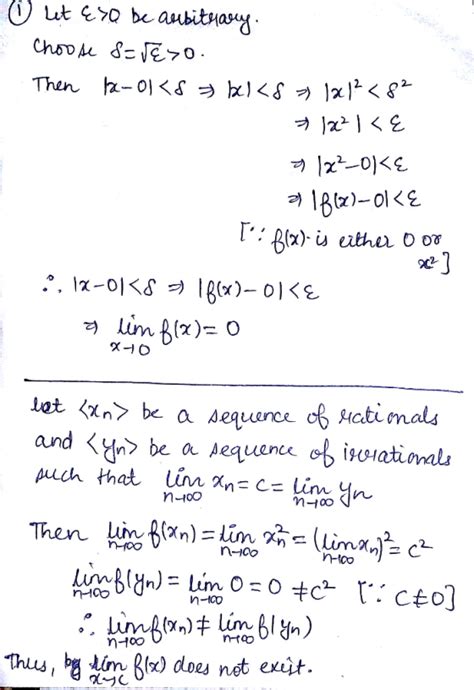 ① Let ε>0 be arbitrary.
Choose δ=√ε>0.
Then |x-0|<δ ⇒ |x|<δ ⇒ |x|²<δ²
⇒ |x²|<ε
⇒ |x²-0|<ε
⇒ |f(x)-0|<ε
[∵ f(x) is either 0 or
x²]
∴ |x-0|<δ ⇒ |f(x)-0|<ε
⇒ lim f(x)=0
x→0
let <xn> be a sequence of rationals
and <yn> be a sequence of irrationals
such that lim xn = c = lim yn
n→∞ n→∞
Then lim f(xn) = lim xn² = (lim xn)² = c²
n→∞ n→∞ n→∞
lim f(yn) = lim 0 = 0 ≠ c² [∵ c≠0]
n→∞ n→∞
∴ lim f(xn) ≠ lim f(yn)
n→∞ n→∞
Thus, lim f(x) does not exist.
x→c